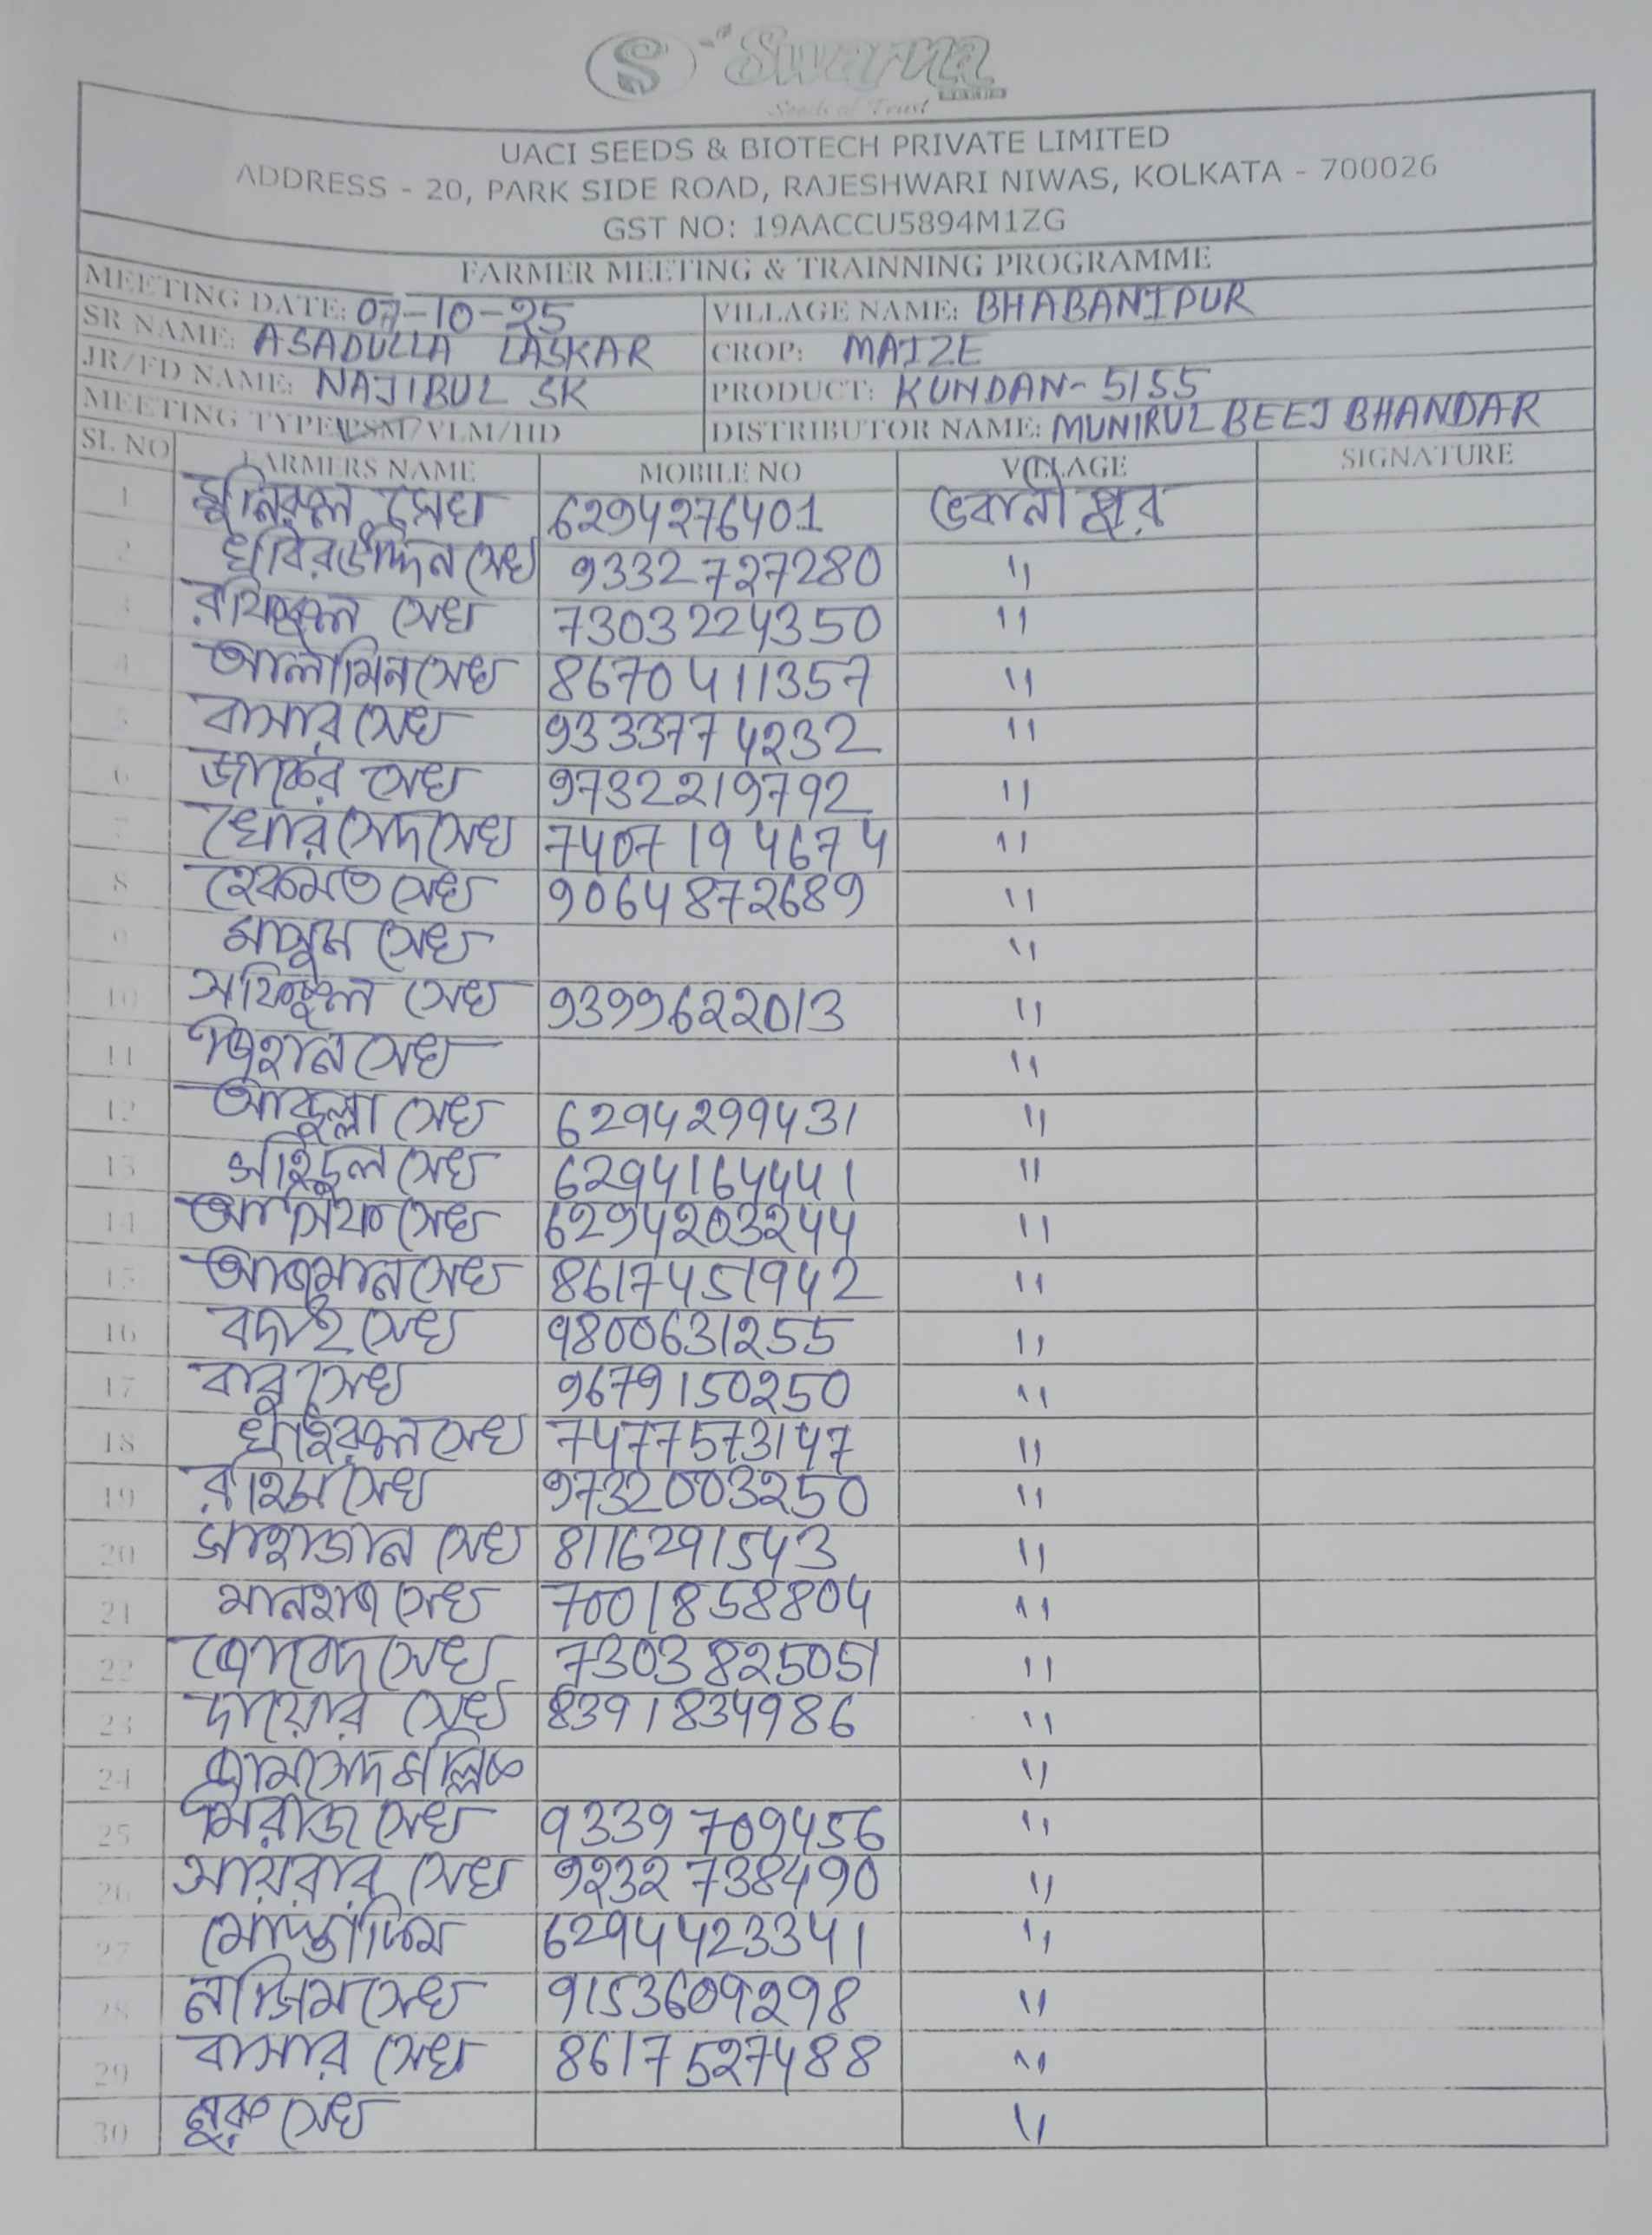 Swarna
Seeds of Trust
UACI SEEDS & BIOTECH PRIVATE LIMITED
ADDRESS - 20, PARK SIDE ROAD, RAJESHWARI NIWAS, KOLKATA - 700026
GST NO: 19AACCU5894M1ZG
FARMER MEETING & TRAINNING PROGRAMME
MEETING DATE: 07-10-25 VILLAGE NAME: BHABANIPUR
SR NAME: ASADULLA LASKAR CROP: MAIZE
JR/FD NAME: NAJIBUL SK PRODUCT: KUNDAN-5155
MEETING TYPE: PSM/VLM/HD DISTRIBUTOR NAME: MUNIRUL BEEJ BHANDAR
SL NO FARMERS NAME MOBILE NO VILLAGE SIGNATURE
1 মুনিরুল সেখ 6294276401 ভবানীপুর
2 খবিরউদ্দিন সেখ 9332727280 "
3 রফিকুল সেখ 7303224350 "
4 আলামিন সেখ 8670411357 "
5 বাসার সেখ 9333774232 "
6 জাকের সেখ 9732219792 "
7 খোরসেদ সেখ 7407194674 "
8 হেকমত সেখ 9064872689 "
9 মাসুম সেখ "
10 সফিকুল সেখ 9399622013 "
11 জিশান সেখ "
12 আব্দুল্লা সেখ 6294299431 "
13 সাইদুল সেখ 6294164441 "
14 আসিফ সেখ 6294203244 "
15 আজমান সেখ 8617451942 "
16 বদাই সেখ 9800631255 "
17 বাবু সেখ 9679150250 "
18 খাইরুল সেখ 7477573147 "
19 রহিম সেখ 9732003250 "
20 সাহাজান সেখ 8116291543 "
21 মানহাজ সেখ 7001858804 "
22 জোবেদ সেখ 7303825051 "
23 সেখ 8391834986 "
24 জামসেদ মল্লিক "
25 মিরাজ সেখ 9339709456 "
26 সেখ 9232738490 "
27 6294423341 "
28 নাজিম সেখ 9153609298 "
29 বাসার সেখ 8617527488 "
30 নুরু সেখ "